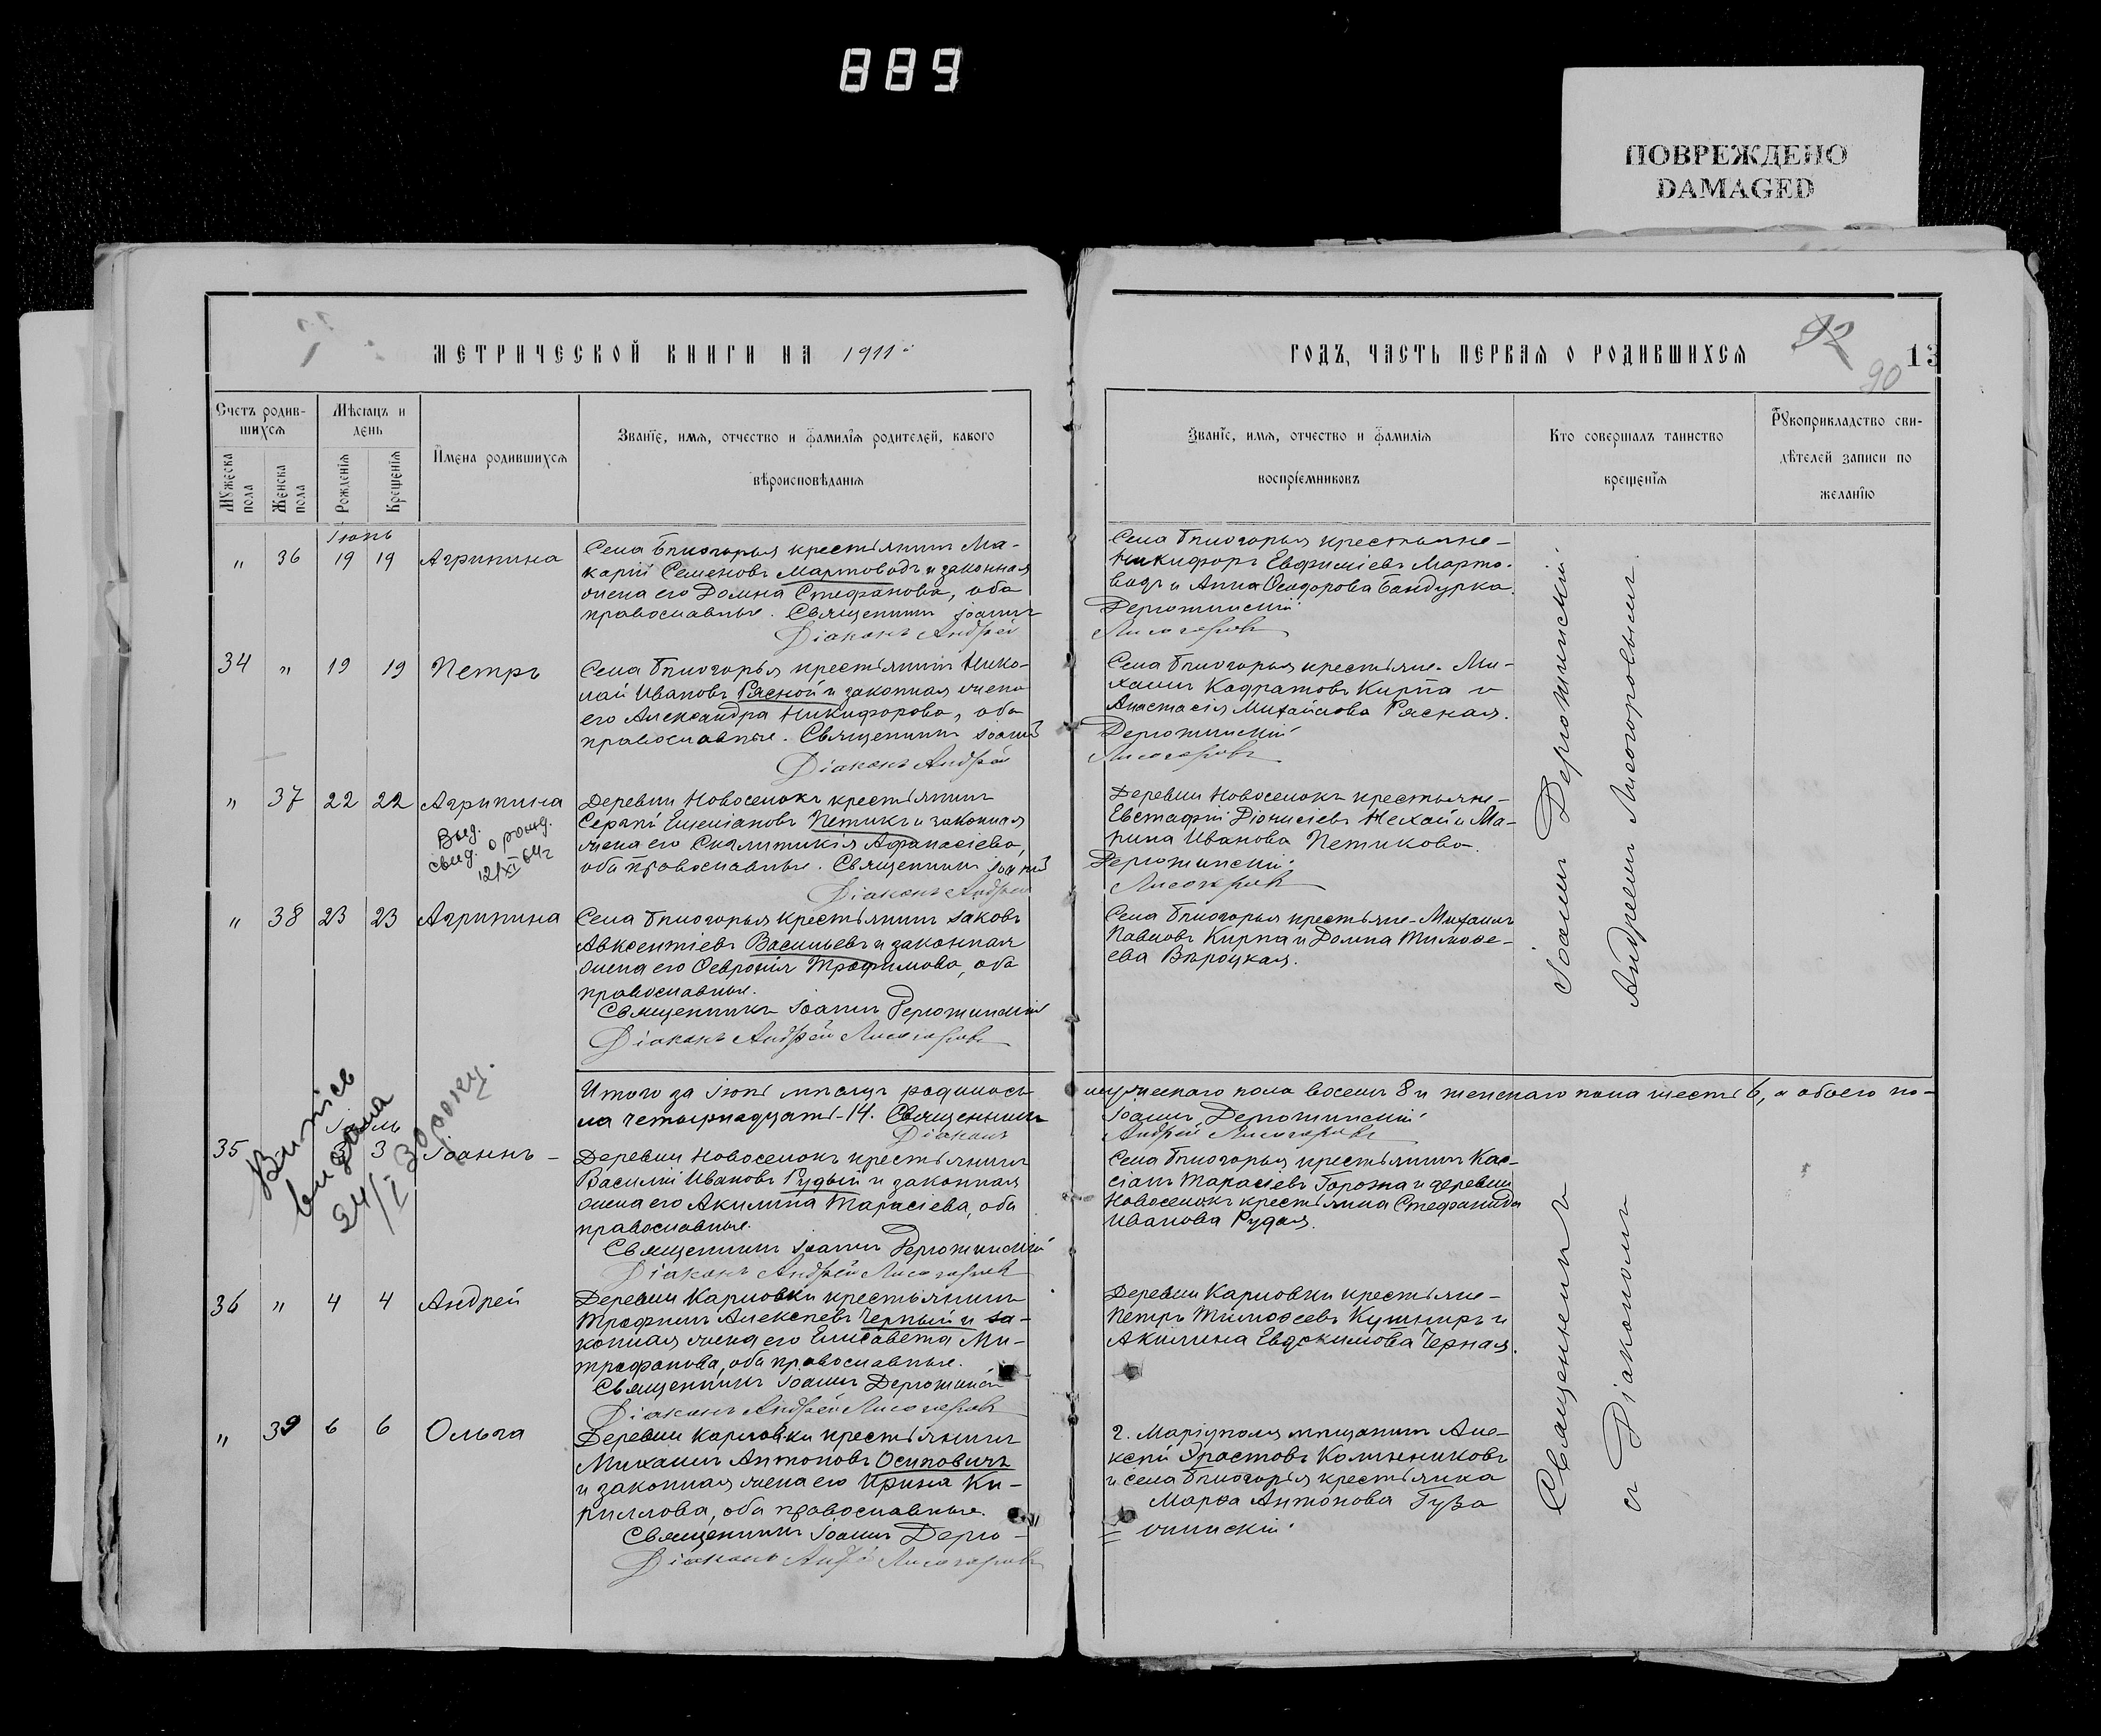 889
ПОВРЕЖДЕНО
DAMAGED
МЕТРИЧЕСКОЙ КНИГИ НА 1911
ГОДЪ, ЧАСТЬ ПЕРВАЯ О РОДИВШИХСЯ
92
90
13
Счетъ родив-
шихся
Мужеска пола
Женска пола
Мѣсяцъ и
день
Рожденія
Крещенія
Имена родившихся
Званіе, имя, отчество и фамилія родителей, какого
вѣроисповѣданія
Званіе, имя, отчество и фамилія
воспріемниковъ
Кто совершалъ таинство
крещенія
Рукоприкладство сви-
дѣтелей записи по
желанію
Іюнь
" 36 19 19 Агрипина
Села Бѣлогорья крестьянинъ Ма-
карій Семеновъ Мартоводъ и законная
жена его Домна Стефанова, оба
православные. Священникъ Іоаннъ
Діаконъ Андрей
Села Бѣлогорья крестьяне-
Никифоръ Евфиміевъ Марто-
водъ и Анна Ѳеодорова Бандурка.
Держинскій
Лисогоровъ
34 " 19 19 Петръ
Села Бѣлогорья крестьянинъ Нико-
лай Ивановъ Рясной и законная жена
его Александра Никифорова, оба
православные. Священникъ Іоаннъ
Діаконъ Андрей
Села Бѣлогорья крестьяне- Ми-
хаилъ Кодратовъ Кирпа и
Анастасія Михайлова Рясная.
Лисогоровъ
" 37 22 22 Агрипина
Выд.
свид. о рожд.
12/XI 64г
Деревни Новоселокъ крестьянинъ
Сергій Емеліановъ Петикъ и законная
жена его Афанасіева,
оба православные. Священникъ Іоаннъ
Діаконъ Андрей
Деревни Новоселокъ крестьяне-
Евстафій Діонисіевъ Нехай и Ма-
рина Иванова Петикова.
Лисогоровъ
" 38 23 23 Агрипина
Села Бѣлогорья крестьянинъ Іаковъ
Авксентіевъ Васильевъ и законная
жена его Ѳевронія Трофимова, оба
православные.
Священникъ Іоаннъ
Діаконъ Андрей Лисогоровъ
Села Бѣлогорья крестьяне- Михаилъ
Павловъ Кирпа и Домна Тимоѳе-
ева
Итого за Іюнь мѣсяцъ родилось
мужескаго пола восемь 8 и женскаго пола шесть 6, а обоего по-
ла четырнадцать-14. Священникъ
Іоаннъ
Діаконъ
Андрей Лисогоровъ
Витяг
видана
24/I 30 року.
Іюль
35 3 3 Іоаннъ -
Деревни Новоселокъ крестьянинъ
Василій Ивановъ Рудый и законная
жена его Акилина Тарасіева, оба
православные.
Священникъ Іоаннъ
Діаконъ Андрей Лисогоровъ
Села Бѣлогорья крестьянинъ Кас-
сіанъ Тарасіевъ и деревни
Новоселокъ крестьянка Стефанида
Иванова Рудая.
36 " 4 4 Андрей
Деревни Карловки крестьянинъ
Трофимъ Алексѣевъ Черный и за-
конная жена его Елисавета Ми-
трофанова, оба православные.
Священникъ Іоаннъ
Діаконъ Андрей Лисогоровъ
Деревни Карловки крестьяне-
Петръ Тимоѳеевъ Кушниръ и
Акилина Евдокимова Черная.
" 39 6 6 Ольга
Деревни Карловки крестьянинъ
Михаилъ Антоновъ Осиповичъ
и законная жена его Ирина Ки-
риллова, оба православные.
Священникъ Іоаннъ
Діаконъ Андрей Лисогоровъ
г. Маріуполя мѣщанинъ Але-
ксѣй Эрастовъ Калинниковъ
и села Бѣлогорья крестьянка
Марѳа Антонова Гуза
Священникъ Іоаннъ
съ Діакономъ Андреемъ Лисогоровымъ